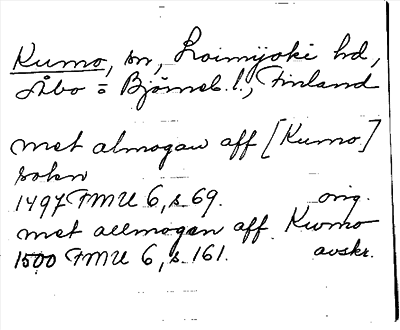 Kumo, sn, Loimijoki hd,
Åbo = Björneb. l., Finland
met almogan aff [Kumo]
sokn
1497 FMU 6, s. 69. orig.
met allmogen aff Kwmo
1500 FMU 6, s. 161. avskr.